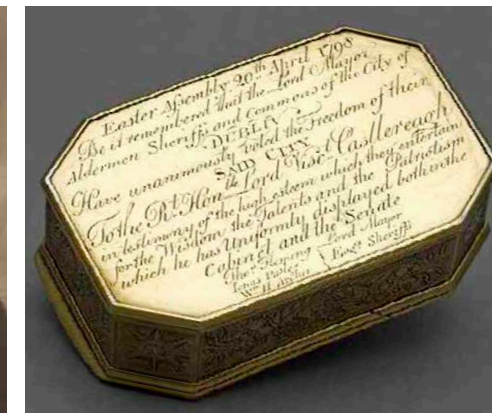 Easter Assembly 20th April 1798
Be it remembered that the Lord Mayor
Aldermen Sheriffs and Commons of the City of
DUBLIN
Have unanimously voted the Freedom of their
SAID CITY
To the Rt. Honble Lord Visct. Castlereagh
in testimony of the high esteem which they entertain
for the Wisdom the Talents and the Patriotism
which he has Uniformly displayed both in the
Cabinet and the Senate
Thos. Fleming Lord Mayor
Sheriffs